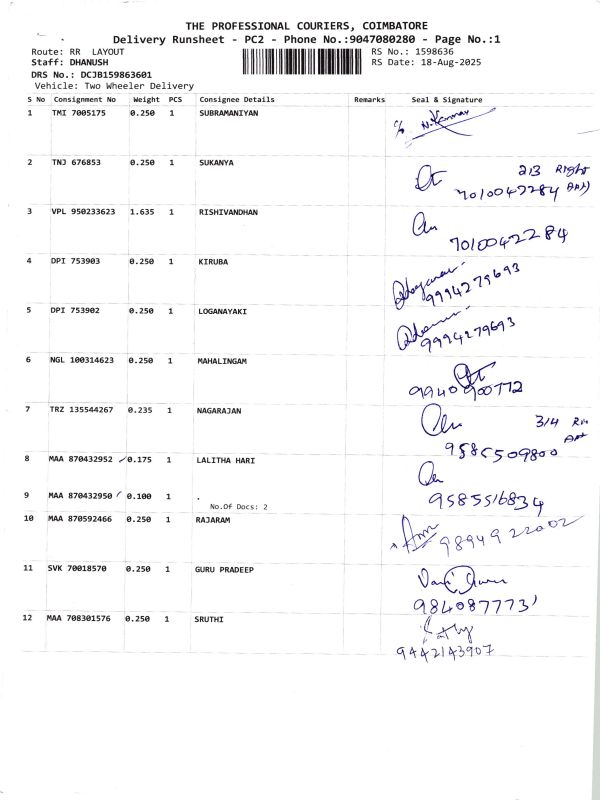 THE PROFESSIONAL COURIERS, COIMBATORE
Delivery Runsheet - PC2 - Phone No.:9047080280 - Page No.:1
Route: RR LAYOUT
Staff: DHANUSH
DRS No.: DCJB159863601
Vehicle: Two Wheeler Delivery
RS No.: 1598636
RS Date: 18-Aug-2025
S No Consignment No Weight PCS Consignee Details Remarks Seal & Signature
1 TMI 7005175 0.250 1 SUBRAMANIYAN
c/o N. Kumar
2 TNJ 676853 0.250 1 SUKANYA
213 Right
7010042284 App)
3 VPL 950233623 1.635 1 RISHIVANDHAN
7010042284
4 DPI 753903 0.250 1 KIRUBA
9994279693
5 DPI 753902 0.250 1 LOGANAYAKI
9994279693
6 NGL 100314623 0.250 1 MAHALINGAM
9940900772
7 TRZ 135544267 0.235 1 NAGARAJAN
314
9585509800
8 MAA 870432952 0.175 1 LALITHA HARI
9 MAA 870432950 0.100 1 .
No.Of Docs: 2
9585516834
10 MAA 870592466 0.250 1 RAJARAM
9894922002
11 SVK 70018570 0.250 1 GURU PRADEEP
9840877731
12 MAA 708301576 0.250 1 SRUTHI
9442143907